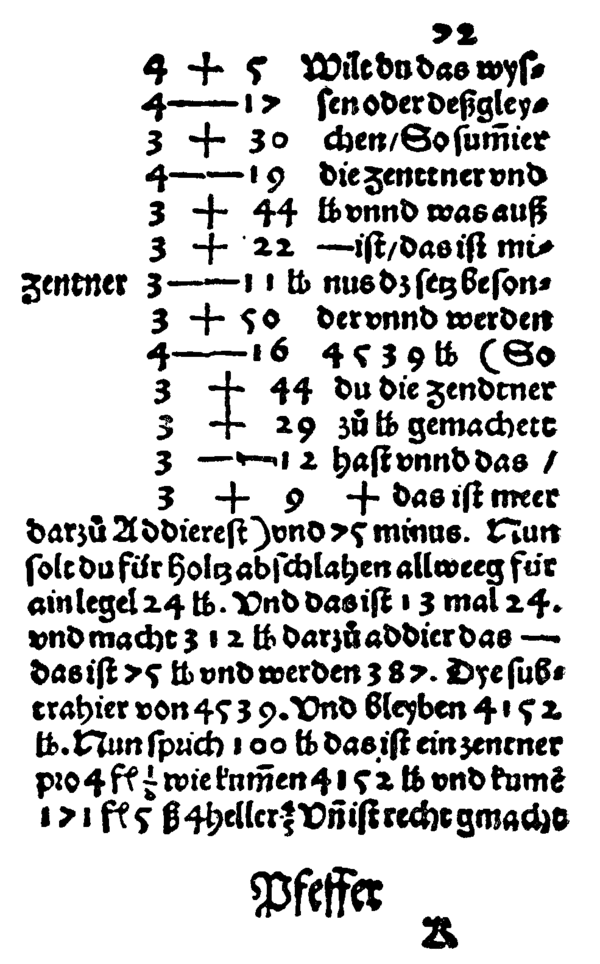 72
4 + 5 Wilt du das wyſ⸗
4 — 17 ſen oder deßgley⸗
3 + 30 chen/ So ſum̄ier
4 — 19 die zenttner vnd
3 + 44 ℔ vnnd was auß
3 + 22 — iſt/ das iſt mi⸗
zentner 3 — 11 ℔ nus dz ſetz beſon⸗
3 + 50 der vnnd werden
4 — 16 4539 ℔ (So
3 + 44 du die zendtner
3 + 29 zů ℔ gemachett
3 — 12 haſt vnnd das /
3 + 9 + das iſt meer
darzů Addiereſt) vnd 75 minus. Nun
ſolt du für holtz abſchlahen allweeg für
ain legel 24 ℔. Vnd das iſt 13 mal 24.
vnd macht 312 ℔ darzů addier das —
das iſt 75 ℔ vnd werden 387. Dye ſub⸗
trahier von 4539. Vnd bleyben 4152
℔. Nun ſprich 100 ℔ das iſt ein zentner
pro 4 fl ⅛ wie kum̄en 4152 ℔ vnd kumē
171 fl 5 ß 4 heller ⅘ Vn̄ iſt recht gmacht
Pfeffer